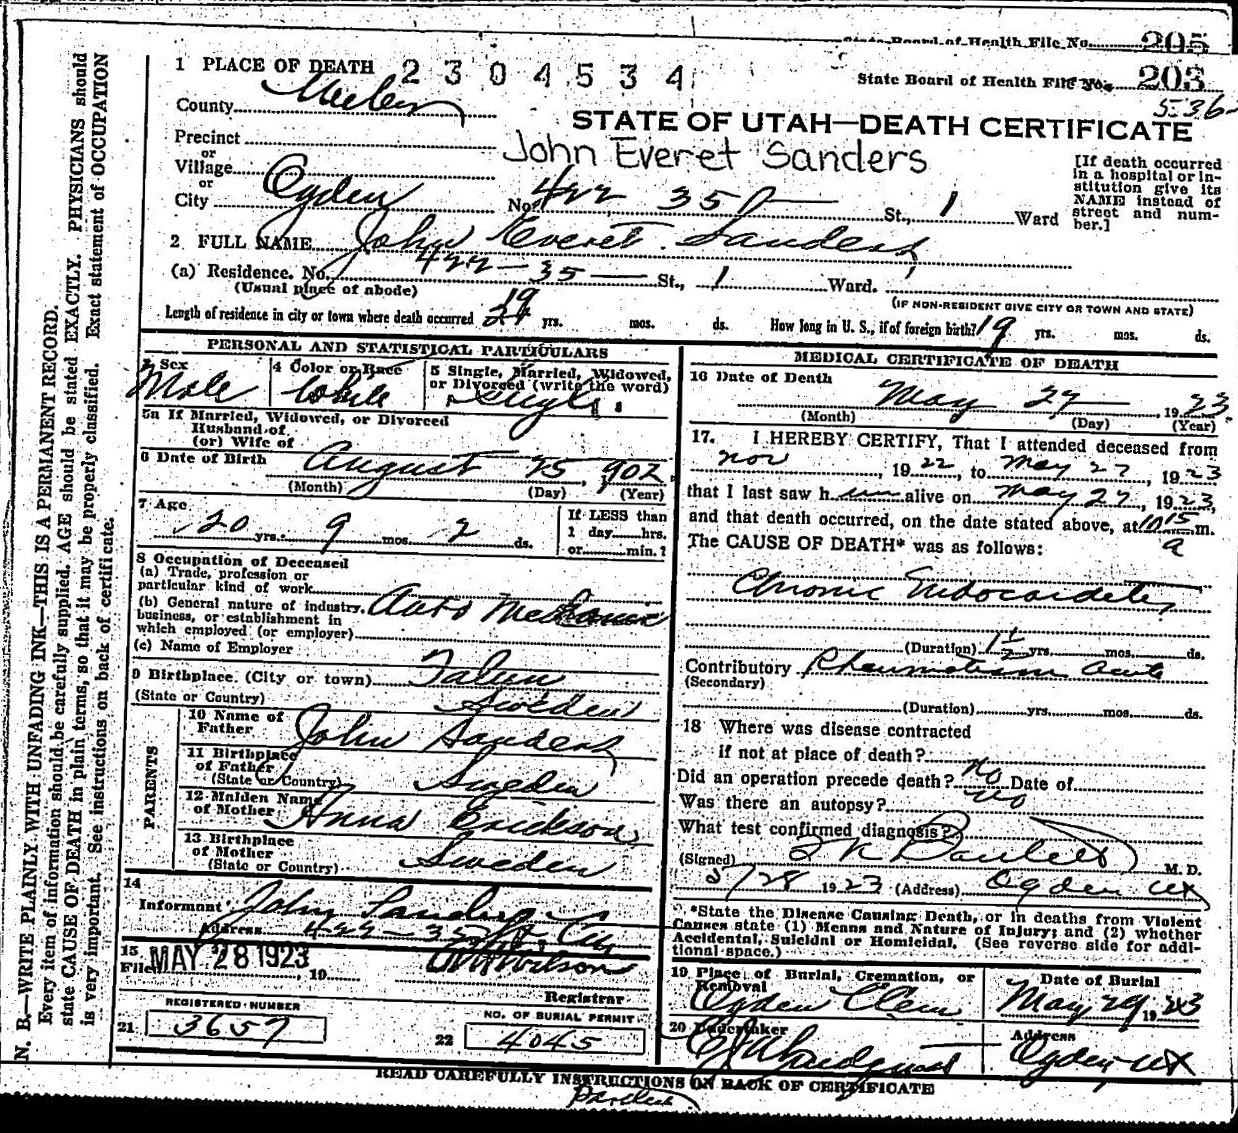 State Board of Health File No. 205
1 PLACE OF DEATH 2304534 State Board of Health File No. 203
536
County Weber
STATE OF UTAH—DEATH CERTIFICATE
Precinct
John Everet Sanders
or
Village
or
City Ogden No. 422 35 St., 1 Ward
[If death occurred
in a hospital or in-
stitution give its
NAME instead of
street and num-
ber.]
2 FULL NAME John Everet Sanders
(a) Residence. No. 422—35 St., 1 Ward.
(Usual place of abode) (IF NON-RESIDENT GIVE CITY OR TOWN AND STATE)
Length of residence in city or town where death occurred 19 yrs. mos. ds. How long in U. S., if of foreign birth? 19 yrs. mos. ds.
PERSONAL AND STATISTICAL PARTICULARS
3 Sex
Male
4 Color or Race
White
5 Single, Married, Widowed,
or Divorced (write the word)
Single
5a If Married, Widowed, or Divorced
Husband of
(or) Wife of
6 Date of Birth August 25, 902
(Month) (Day) (Year)
7 Age
20 yrs. 9 mos. 2 ds.
If LESS than
1 day hrs.
or min.?
8 Occupation of Deceased
(a) Trade, profession or
particular kind of work
(b) General nature of industry, Auto Mechanic
business, or establishment in
which employed (or employer)
(c) Name of Employer
9 Birthplace (City or town) Falun
(State or Country) Sweden
PARENTS
10 Name of
Father John Sanders
11 Birthplace
of Father
(State or Country) Sweden
12 Maiden Name
of Mother Anna Erickson
13 Birthplace
of Mother
(State or Country) Sweden
14
Informant John Sanders
Address 422—35 St, City
15
Filed MAY 28 1923 19 Wilson
Registrar
REGISTERED NUMBER
21 3657
NO. OF BURIAL PERMIT
22 4045
MEDICAL CERTIFICATE OF DEATH
16 Date of Death
May 27 1923
(Month) (Day) (Year)
17. I HEREBY CERTIFY, That I attended deceased from
Nov, 1922, to May 27, 1923
that I last saw him alive on May 27, 1923,
and that death occurred, on the date stated above, at 10 15 a m.
The CAUSE OF DEATH* was as follows:
Chronic Endocarditis
(Duration) 1 1/2 yrs. mos. ds.
Contributory Rheumatism acute
(Secondary)
(Duration) yrs. mos. ds.
18 Where was disease contracted
if not at place of death?
Did an operation precede death? no Date of
Was there an autopsy? no
What test confirmed diagnosis?
(Signed) M. D.
/28 1923 (Address) Ogden Ut
*State the Disease Causing Death, or in deaths from Violent
Causes state (1) Means and Nature of Injury; and (2) whether
Accidental, Suicidal or Homicidal. (See reverse side for addi-
tional space.)
19 Place of Burial, Cremation, or
Removal
Ogden Cem
Date of Burial
May 29 1923
20 Undertaker
Address
Ogden Ut
READ CAREFULLY INSTRUCTIONS ON BACK OF CERTIFICATE
N. B.—WRITE PLAINLY, WITH UNFADING INK—THIS IS A PERMANENT RECORD.
Every item of information should be carefully supplied. AGE should be stated EXACTLY. PHYSICIANS should
state CAUSE OF DEATH in plain terms, so that it may be properly classified. Exact statement of OCCUPATION
is very important. See instructions on back of certificate.